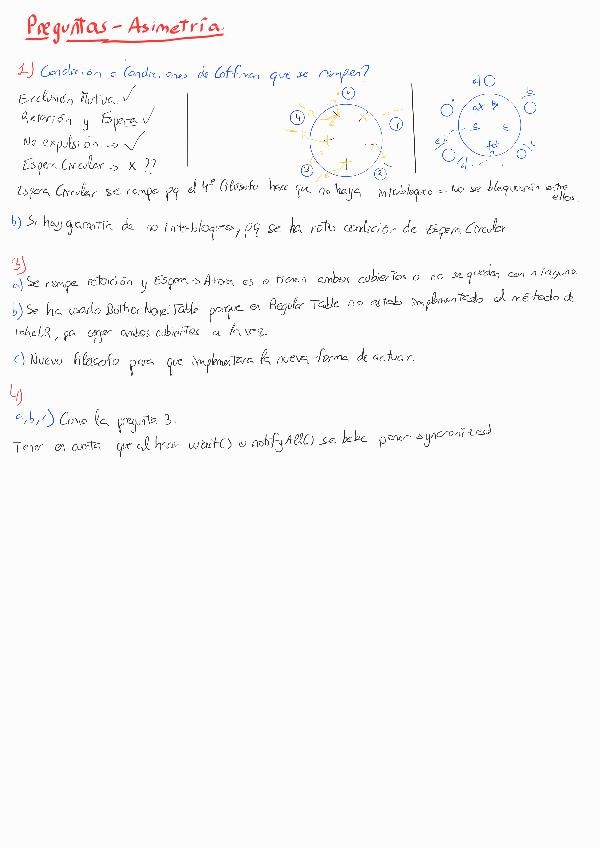 Preguntas - Asimetría
1) Condición o Condiciones de Coffman que se rompen?
Exclusión Mutua ✓
Retención y Espera ✓
No expulsión → ✓
Espera Circular → x ??
Espera Circular se rompe pq el 4º filósofo hace que no haya interbloqueo = No se bloquearán entre ellos.
b) Si hay garantía de no interbloqueo, pq se ha roto condición de Espera Circular
3)
a) Se rompe retención y Espera → Ahora es o tienen ambos cubiertos o no se quedan con ninguno
b) Se ha usado BothOrNoneTable porque en Regular Table no estaba implementado el método de
takeLR, pa coger ambos cubiertos a la vez.
c) Nuevo filósofo para que implementara la nueva forma de actuar.
4)
a, b, c) Como la pregunta 3.
Tener en cuenta que al hacer wait() o notifyAll() se debe poner syncronized